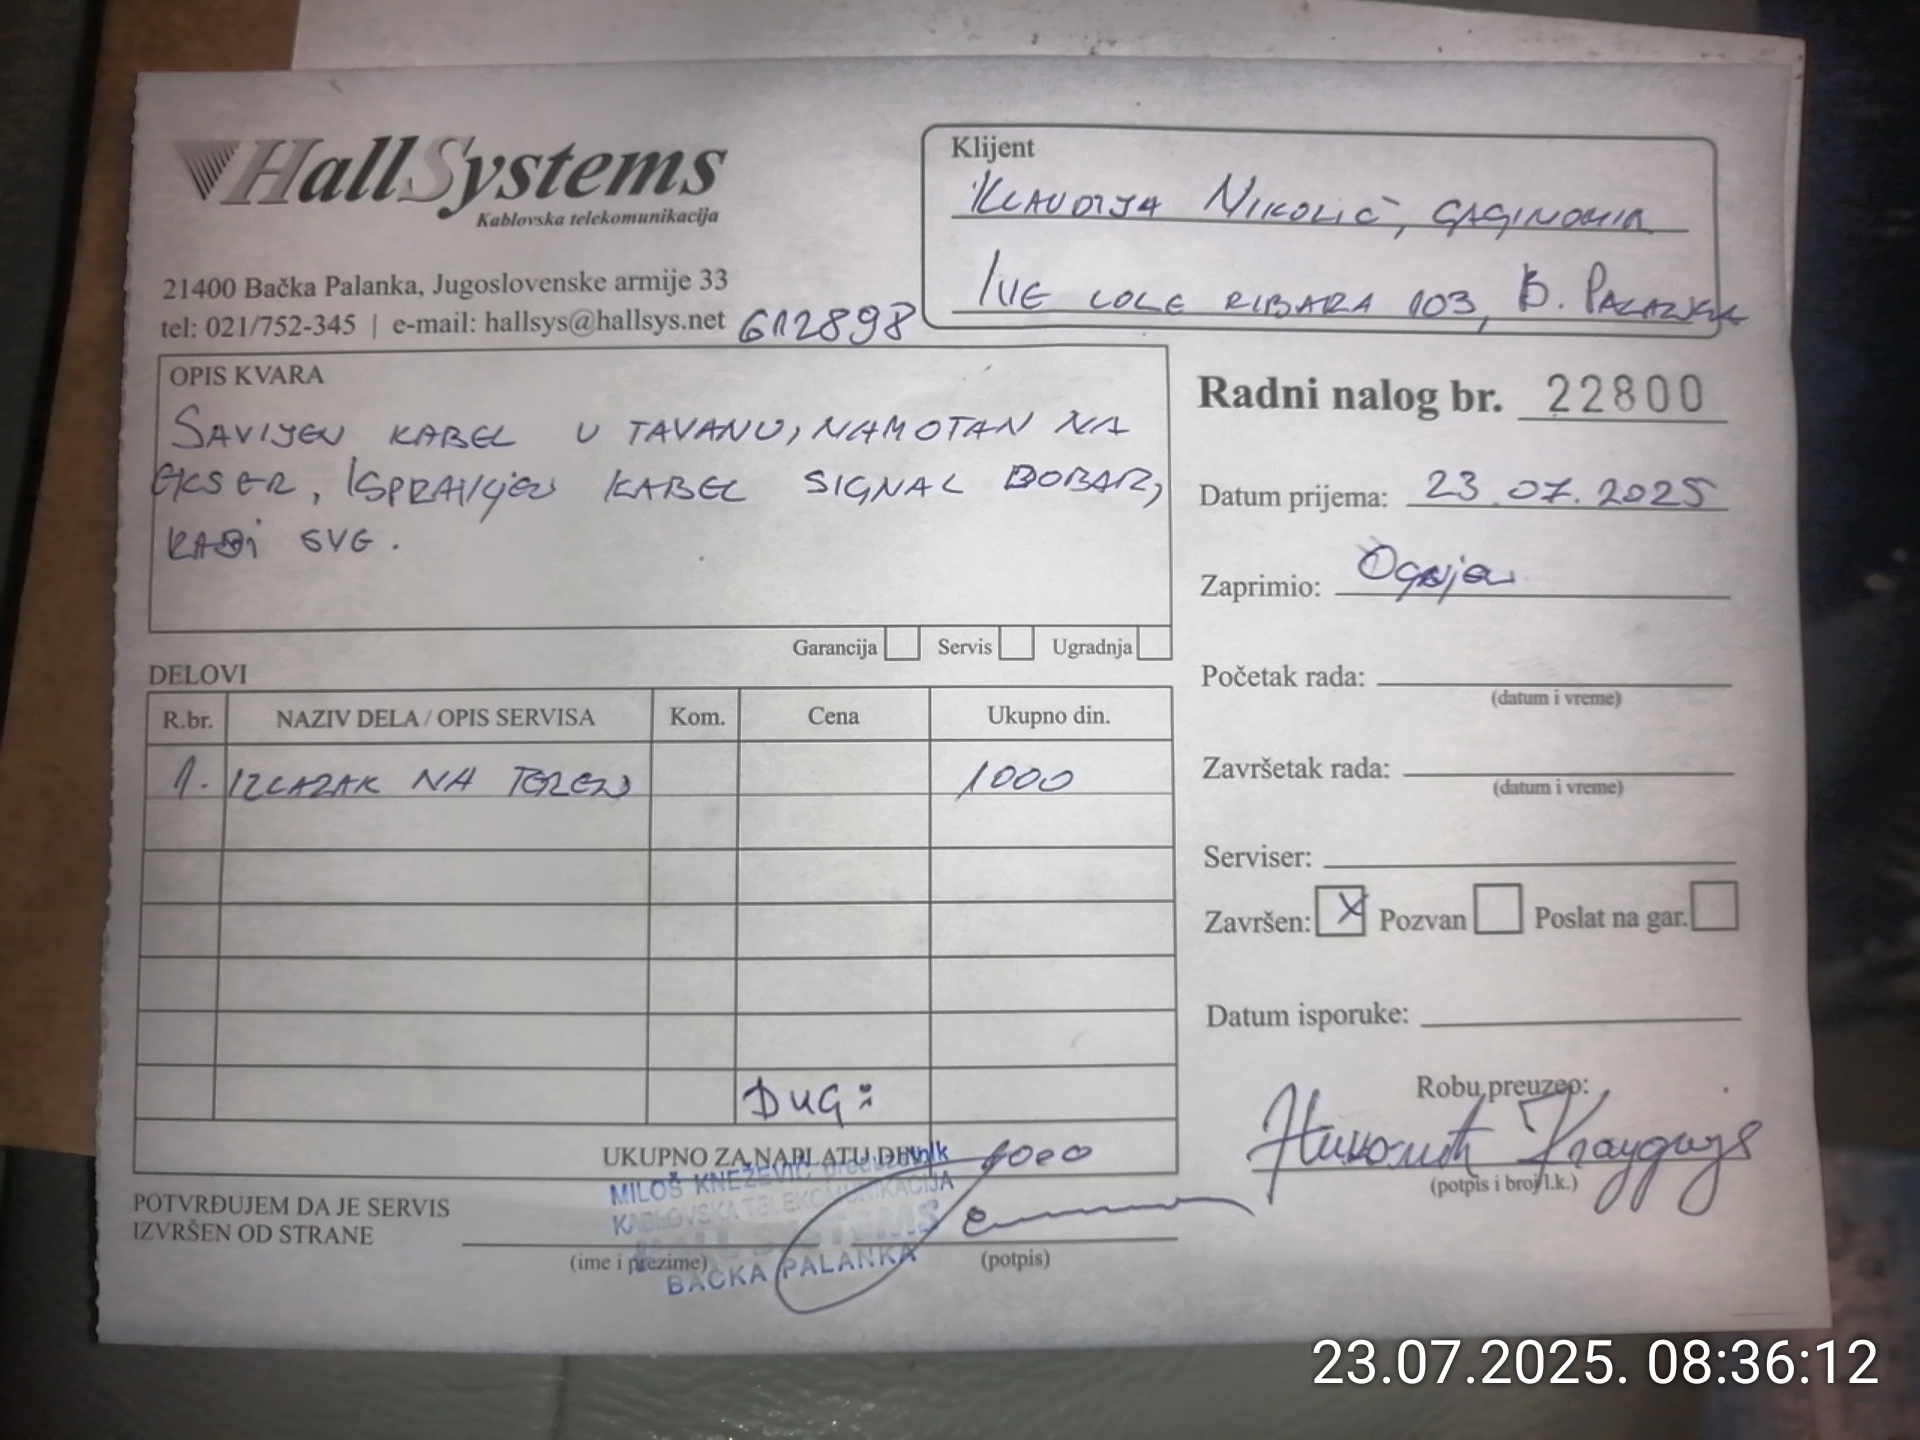 HallSystems
Kablovska telekomunikacija
21400 Bačka Palanka, Jugoslovenske armije 33
tel: 021/752-345 | e-mail: hallsys@hallsys.net
612898
Klijent
KLAUDIJA NIKOLIĆ,
IVE LOLE RIBARA 103, B. PALANKA
OPIS KVARA
SAVIJEN KABEL U TAVANU, NAMOTAN NA
EKSER, ISPRAVLJEN KABEL SIGNAL DOBAR,
RADI SVE.
Garancija Servis Ugradnja
Radni nalog br. 22800
Datum prijema: 23.07.2025
Zaprimio: Ognjen
Početak rada:
(datum i vreme)
Završetak rada:
(datum i vreme)
Serviser:
Završen: X Pozvan Poslat na gar.
Datum isporuke:
Robu preuzeo:
(potpis i broj l.k.)
DELOVI
R.br. NAZIV DELA / OPIS SERVISA Kom. Cena Ukupno din.
1. IZLAZAK NA TEREN 1000
DUG:
UKUPNO ZA NAPLATU DIN. 1000
MILOŠ KNEŽEVIĆ preduzetnik
KABLOVSKA TELEKOMUNIKACIJA
HALL SYSTEMS
BAČKA PALANKA
POTVRĐUJEM DA JE SERVIS
IZVRŠEN OD STRANE
(ime i prezime) (potpis)
23.07.2025. 08:36:12